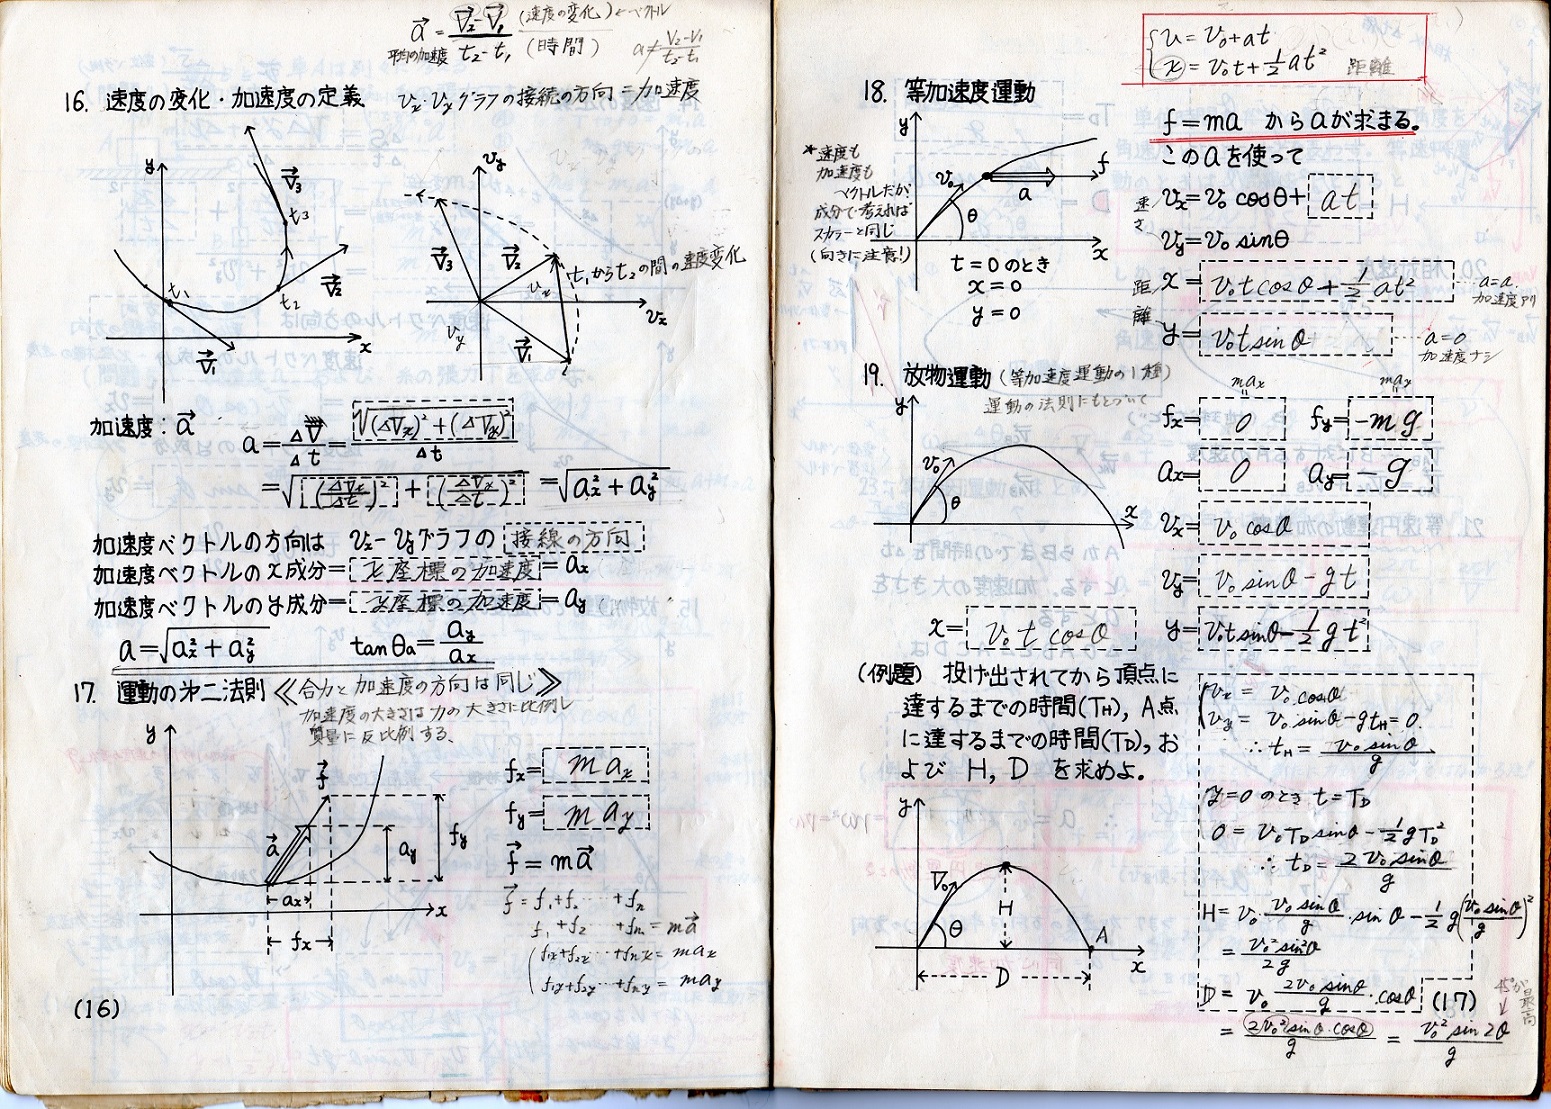 a⃗ = (V⃗₂−V⃗₁)/(t₂−t₁) (速度の変化)←ベクトル/(時間)
平均の加速度
a≠(V₂−V₁)/(t₂−t₁)
16. 速度の変化・加速度の定義
vx・vyグラフの接線の方向=加速度
y
V⃗₃
t₃
t₁
t₂
V⃗₂
V⃗₁
x
vy
V⃗₃
V⃗₂
t₁からt₂の間の速度変化
vx
V⃗₁
加速度:a⃗
a=ΔV⃗/Δt=√((ΔVx)²+(ΔVy)²)/Δt
=√((ΔVx/Δt)²+(ΔVy/Δt)²)=√(ax²+ay²)
加速度ベクトルの方向は vx−vyグラフの 接線の方向
加速度ベクトルのx成分=x座標の加速度=ax
加速度ベクトルのy成分=y座標の加速度=ay
a=√(ax²+ay²) tanθa=ay/ax
17. 運動の第二法則 ≪合力と加速度の方向は同じ≫
加速度の大きさは力の大きさに比例し
質量に反比例する、
y
f⃗
a⃗
ay
fy
ax
fx
x
fx=max
fy=may
f⃗=ma⃗
f⃗=f₁+f₂……+fn
f₁+f₂……+fn=ma⃗
f₁x+f₂x……+fnx=max
f₁y+f₂y……+fny=may
(16)
v=v₀+at
x=v₀t+½at² 距離
18. 等加速度運動
f=ma からaが求まる。
このaを使って
*速度も
加速度も
ベクトルだが
成分で考えれば
スカラーと同じ
(向きに注意!)
y
v₀
θ
a
f
x
t=0のとき
x=0
y=0
速さ
vx=v₀cosθ+at
vy=v₀sinθ
距離
x=v₀tcosθ+½at² ……a=a
加速度アリ
y=v₀tsinθ ……a=0
加速度ナシ
19. 放物運動(等加速度運動の1種)
運動の法則にもとづいて
y
v₀
θ
x
max
may
fx=0 fy=−mg
ax=0 ay=−g
vx=v₀cosθ
vy=v₀sinθ−gt
x=v₀tcosθ y=v₀tsinθ−½gt²
(例題) 投げ出されてから頂点に
達するまでの時間(TH), A点
に達するまでの時間(TD), お
よび H, D を求めよ。
y
V₀
θ
H
A
D
x
vx=v₀cosθ
vy=v₀sinθ−gtH=0.
∴tH=v₀sinθ/g
y=0のときt=TD
0=v₀TDsinθ−½gTD²
∴tD=2v₀sinθ/g
H=v₀・v₀sinθ/g・sinθ−½g(v₀sinθ/g)²
=v₀²sin²θ/2g
D=v₀・2v₀sinθ/g・cosθ
=2v₀²sinθ・cosθ/g=v₀²sin2θ/g
45°が最高
(17)